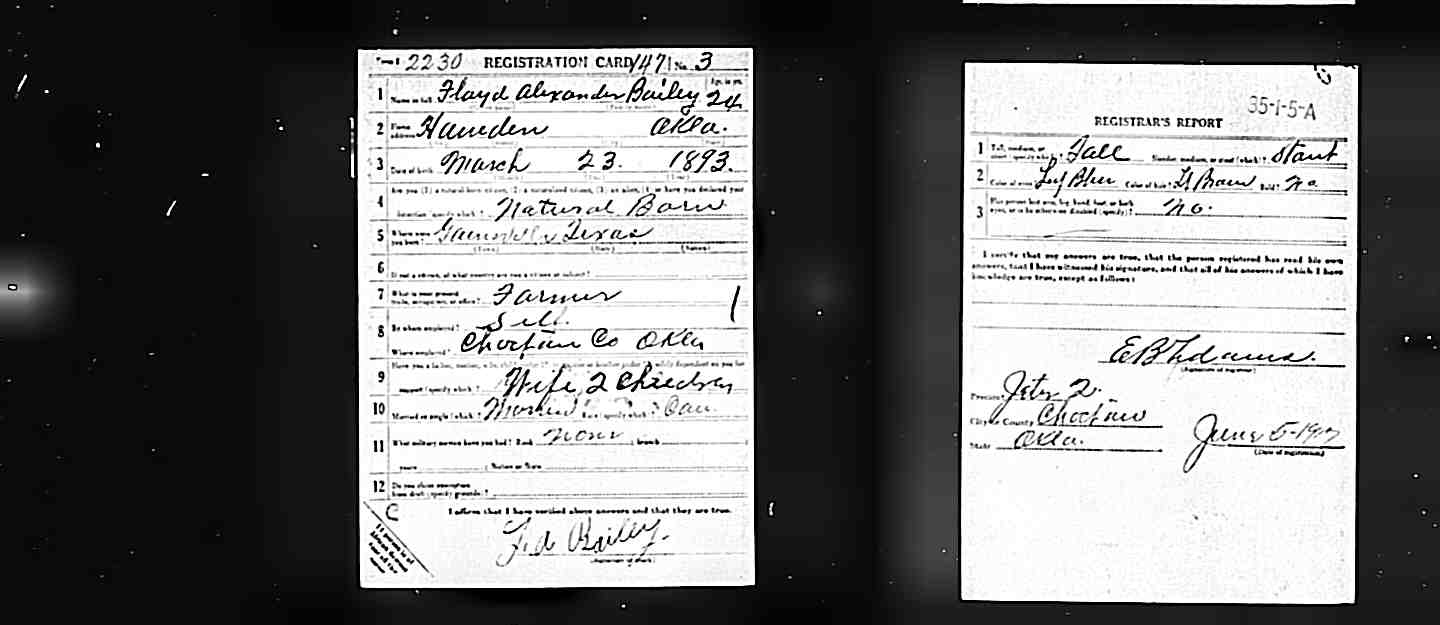 Form 1 2230 REGISTRATION CARD 147 No. 3
1 Name in full Floyd Alexander Bailey Age, in yrs. 24
2 Home address Hamden Okla.
3 Date of birth March 23. 1893.
4 Are you (1) a natural-born citizen, (2) a naturalized citizen, (3) an alien, (4) or have you declared your
intention (specify which)? Natural Born
5 Where were you born? Texas
(Town) (State) (Nation)
6 If not a citizen, of what country are you a citizen or subject?
7 What is your present trade, occupation, or office? Farmer 1
8 By whom employed? Self.
Where employed? Choctaw Co Okla
9 Have you a father, mother, wife, child under 12, or a sister or brother under 12, solely dependent on you for
support (specify which)? Wife, 2 Children
10 Married or single (which)? Married Race (specify which)? Cau.
11 What military service have you had? Rank None ; branch
years ; Nation or State
12 Do you claim exemption from draft (specify grounds)?
C I affirm that I have verified above answers and that they are true.
Bailey.
(Signature or mark)
If person is of African descent
35-1-5-A
REGISTRAR'S REPORT
1 Tall, medium, or short (specify which)? Tall Slender, medium, or stout (which)? Stout
2 Color of eyes? Color of hair? Bald? No
3 Has person lost arm, leg, hand, foot, or both eyes, or is he otherwise disabled (specify)? No.
I certify that my answers are true, that the person registered has read his own
answers, that I have witnessed his signature, and that all of his answers of which I have
knowledge are true, except as follows:
(Signature of registrar)
Precinct Jeter 2.
City or County Choctaw
State Okla. June 5-1917
(Date of registration)